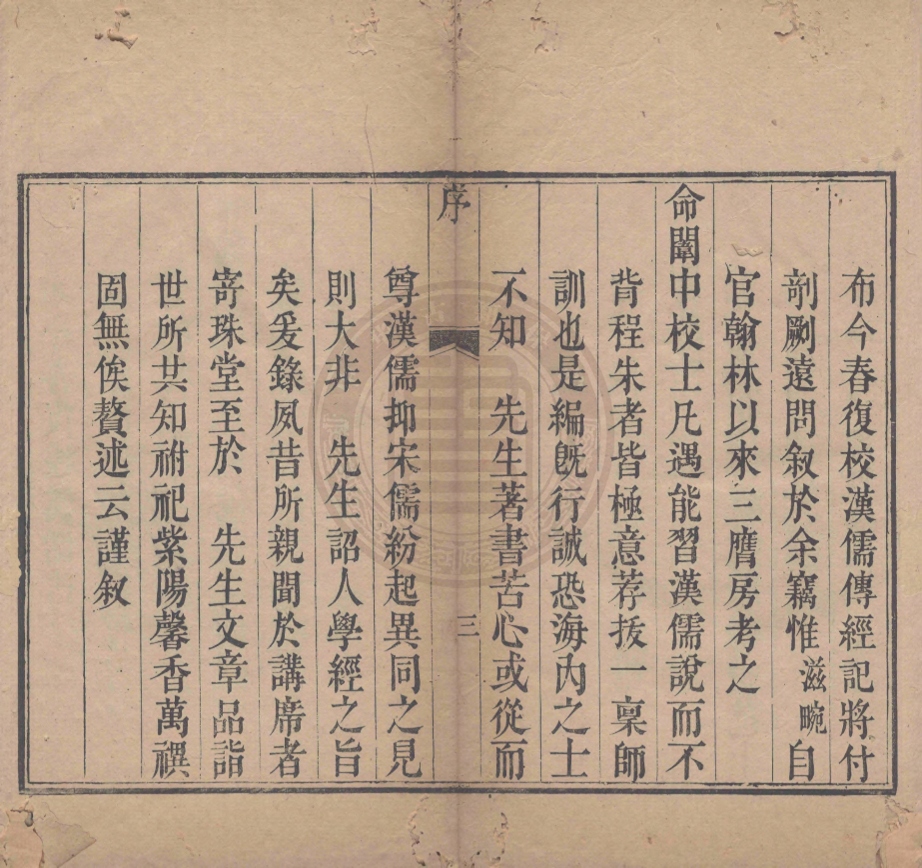 布今春復校漢儒傳經記將付
剞劂遠問叙於余竊惟滋畹自
官翰林以來三膺房考之
命闈中校士凡遇能習漢儒說而不
背程朱者皆極意荐拔一稟師
訓也是編既行誠恐海內之士
不知　先生著書苦心或從而
序
三
尊漢儒抑宋儒紛起異同之見
則大非　先生詔人學經之旨
矣爰錄夙昔所親聞於講席者
寄珠堂至於　先生文章品詣
世所共知祔祀紫陽馨香萬禩
固無俟贅述云謹叙